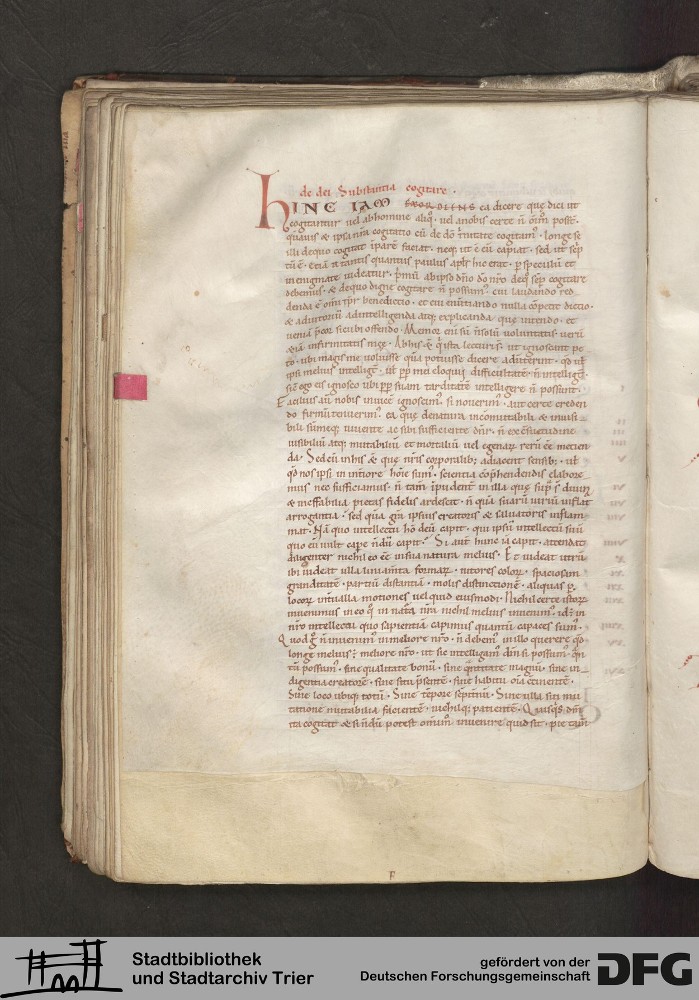 de dei Substantia cogitare.
HINC IAM EXORDIENS ea dicere quę dici ut
cogitantur vel ab homine aliq̊. vel a nobis certe n̄ om̄i possē.
quāvis & ipsa nr̄a cogitatio cū de dō t̄nitate cogitam'. longe se
illi de quo cogitat īparē sentiat. neq; ut ē eū capiat. sed ut scp̄
tū ē. etiā a tantis quantus paulus apl̓s hic erat. p speculū et
in enigmate videatur. p̄mū ab ipso dn̄o dō nr̄o deq̊ sēp cogitare
debemus. & de quo digne cogitare n̄ possum'. cui laudando red
denda ē om̄i tp̄r benedictio. et cui enuntiando nulla cōpetit dictio.
& adiutoriū ad intelligenda atq; explicanda quę intendo. et
veniā p̄cor sicubi offendo. Memor eni sū n̄ solū voluntatis verū
&iā infirmitatis meę. Ab his &̄ q̇ ista lecturi s̄. ut ignoscant pe
to. ubi magis me voluisse quā potuisse dicere adverterint. qd vl̓
ipsi melius intelligt̄. vl̓ pp̄ mei eloquii difficultatē. n̄ intelligt̄.
sic̄ ego eis ignosco ubi pp̄ suam tarditatē intelligere n̄ possunt.
Facilius aū nobis invicē ignoscim'. si noverim'. aut certe creden
do firmū tenuerim'. ea quę de natura incomutabili & invisi
bili sūmeq; vivente ac sibi sufficiente dn̄r. n̄ ex c̄suetudine
visibiliū atq; mutabiliū et mortaliū vel egenaꝝ rerū ēē metien
da. Sed cū in his & quę nr̄is corporalib; adiacent sensib;. vl̓
qd nos ipsi in intiore hoīe sum'. scientia cōp̄hendendis elabore
mus nec sufficiamus. n̄ tam̄ īpudent̄ in illa quę supͣ s̄ divin
& ineffabilia pietas fidelis ardescit. n̄ quā suarū viriū inflat
arrogantia. sed quā gr̄a ipsius creatoris & salvatoris inflam
mat. Nā quo intellectu hō dm̄ capit. qui ipsū intellectū suū
quo eū vult capē n̄dū capit? Si aut̄ hunc iā capit. attendat
diligenter nichil eo ēē in sua natura melius. Et videat utrū
ibi videat ulla liniam̄ta formaꝝ. nitores coloꝝ. spaciosam
granditatē. partiū distantiā. molis distinctionē. aliquas p
locoꝝ int̄valla motiones vel quid eiusmodi. Nichil certe istoꝝ
invenimus in eo q̊ in nat̄a nr̄a nichil melius invenim'. id ē in
nr̄o intellectu quo sapientiā capimus quantū capaces sum'.
Quod g̊ n̄ invenim' in meliore nr̄o. n̄ debem' in illo querere qd
longe melius ē meliore nr̄o. ut sic intelligam' dm̄ si possum'. qn̄
tū possum'. sine qualitate bonū. sine q̄ntitate magnū. sine in
digentia creatorē. sine situ p̄sentē. sine habitu om̄ia c̄tinentē.
Sine loco ubiq; totū. Sine tēpore sēpit̄nū. Sine ulla sui mu
tatione mutabilia facientē. nichilq; patientē. Quisq̇s dm̄
ita cogitat & si n̄dū potest omnim̄ invenire quid sit. pie tam̄
F
Stadtbibliothek
und Stadtarchiv Trier
gefördert von der
Deutschen Forschungsgemeinschaft
DFG